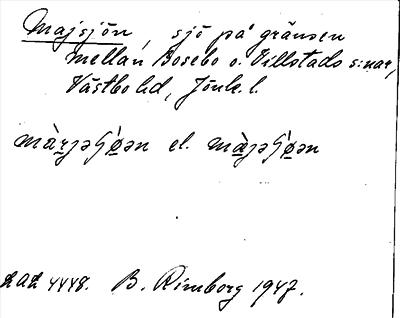 Majsjön, sjö på gränsen
mellan Bosebo o. Villstads s:nar,
Västbo hd, Jönk. l.
màrjəʃǿən el. màjəʃǿən
4448. B. Rimborg 1947.